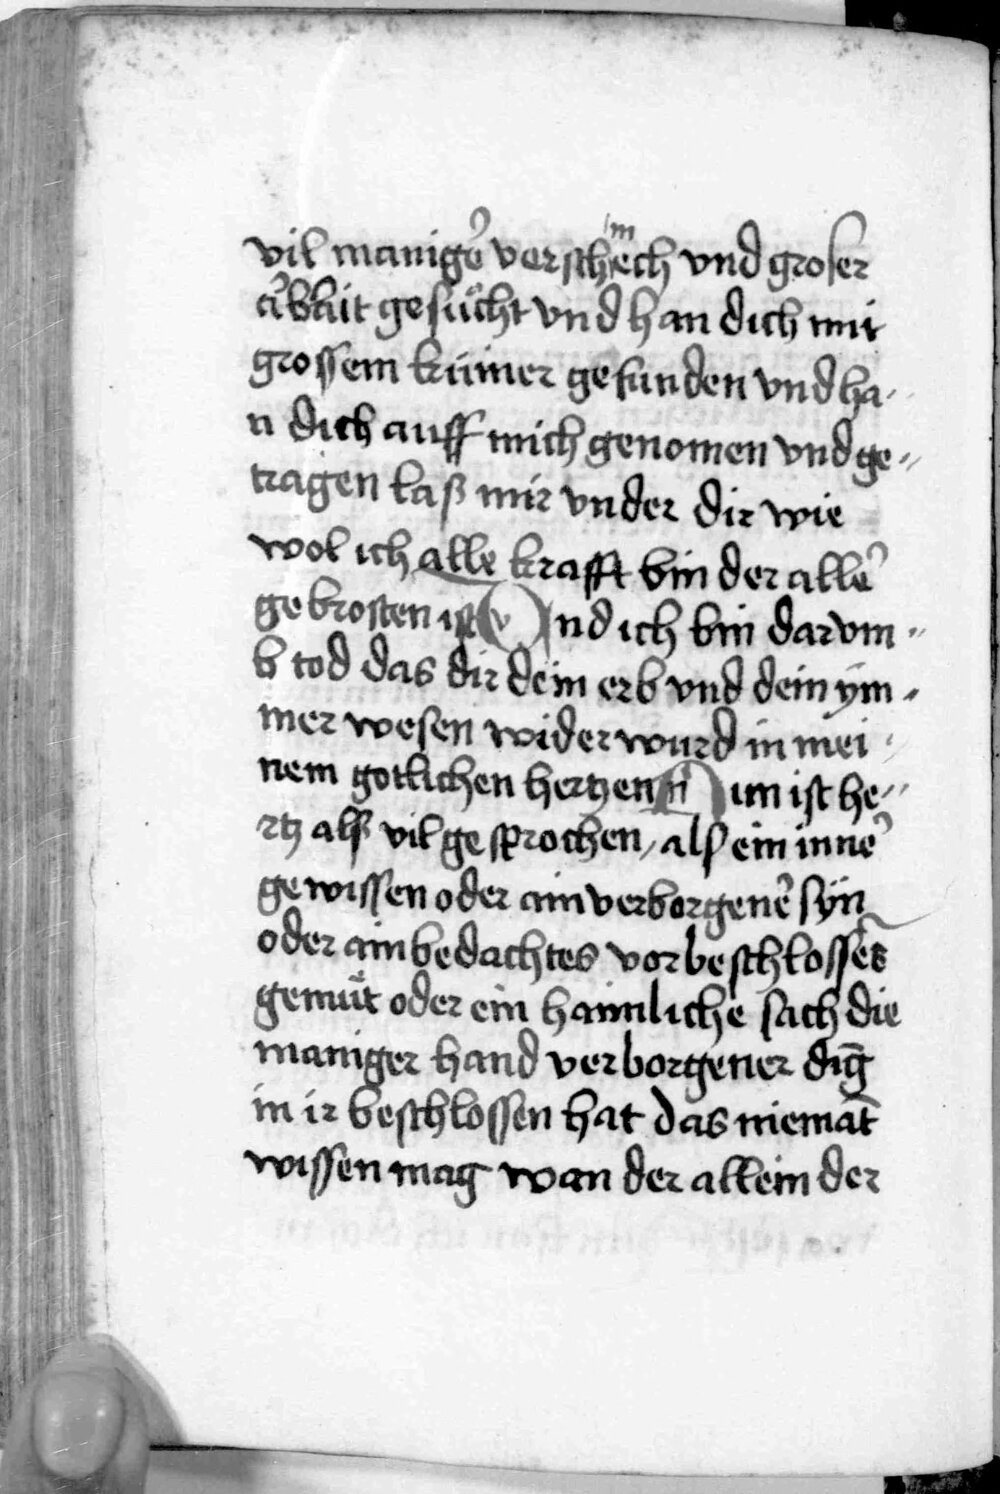 vil manigeᷣ verschmech vnd groser
aᷣbait gesuͦcht vnd han dich mit
grossem kumer gefunden vnd ha-
n dich auff mich genomen vnd ge-
tragen laß mir vnder dir wie
wol ich alle krafft bin der alleᷣ
gebrosten ist Vnd ich bin darvm-
b tod das dir dein erb vnd dein ym-
mer wesen wider wurd in mei-
nem gotlichen hertzen Nun ist he-
rtz alß vil gesprochen / alß ein inneᷣ
gewissen oder ain verborgeneᷣ syn
oder ain bedachtes vorbeschlosses
gemuͤt oder ein haimliche sach die
maniger hand verborgener dīg
in ir beschlossen hat das niemāt
wissen mag wan der allein der